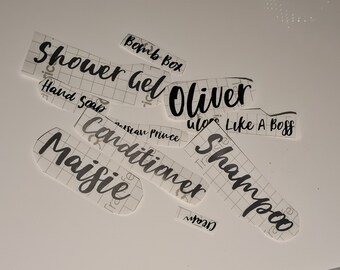 Bomb Box
Shower Gel
Hand Soap
Oliver
Like A Boss
Prince
Conditioner
Shampoo
Maisie
Cream